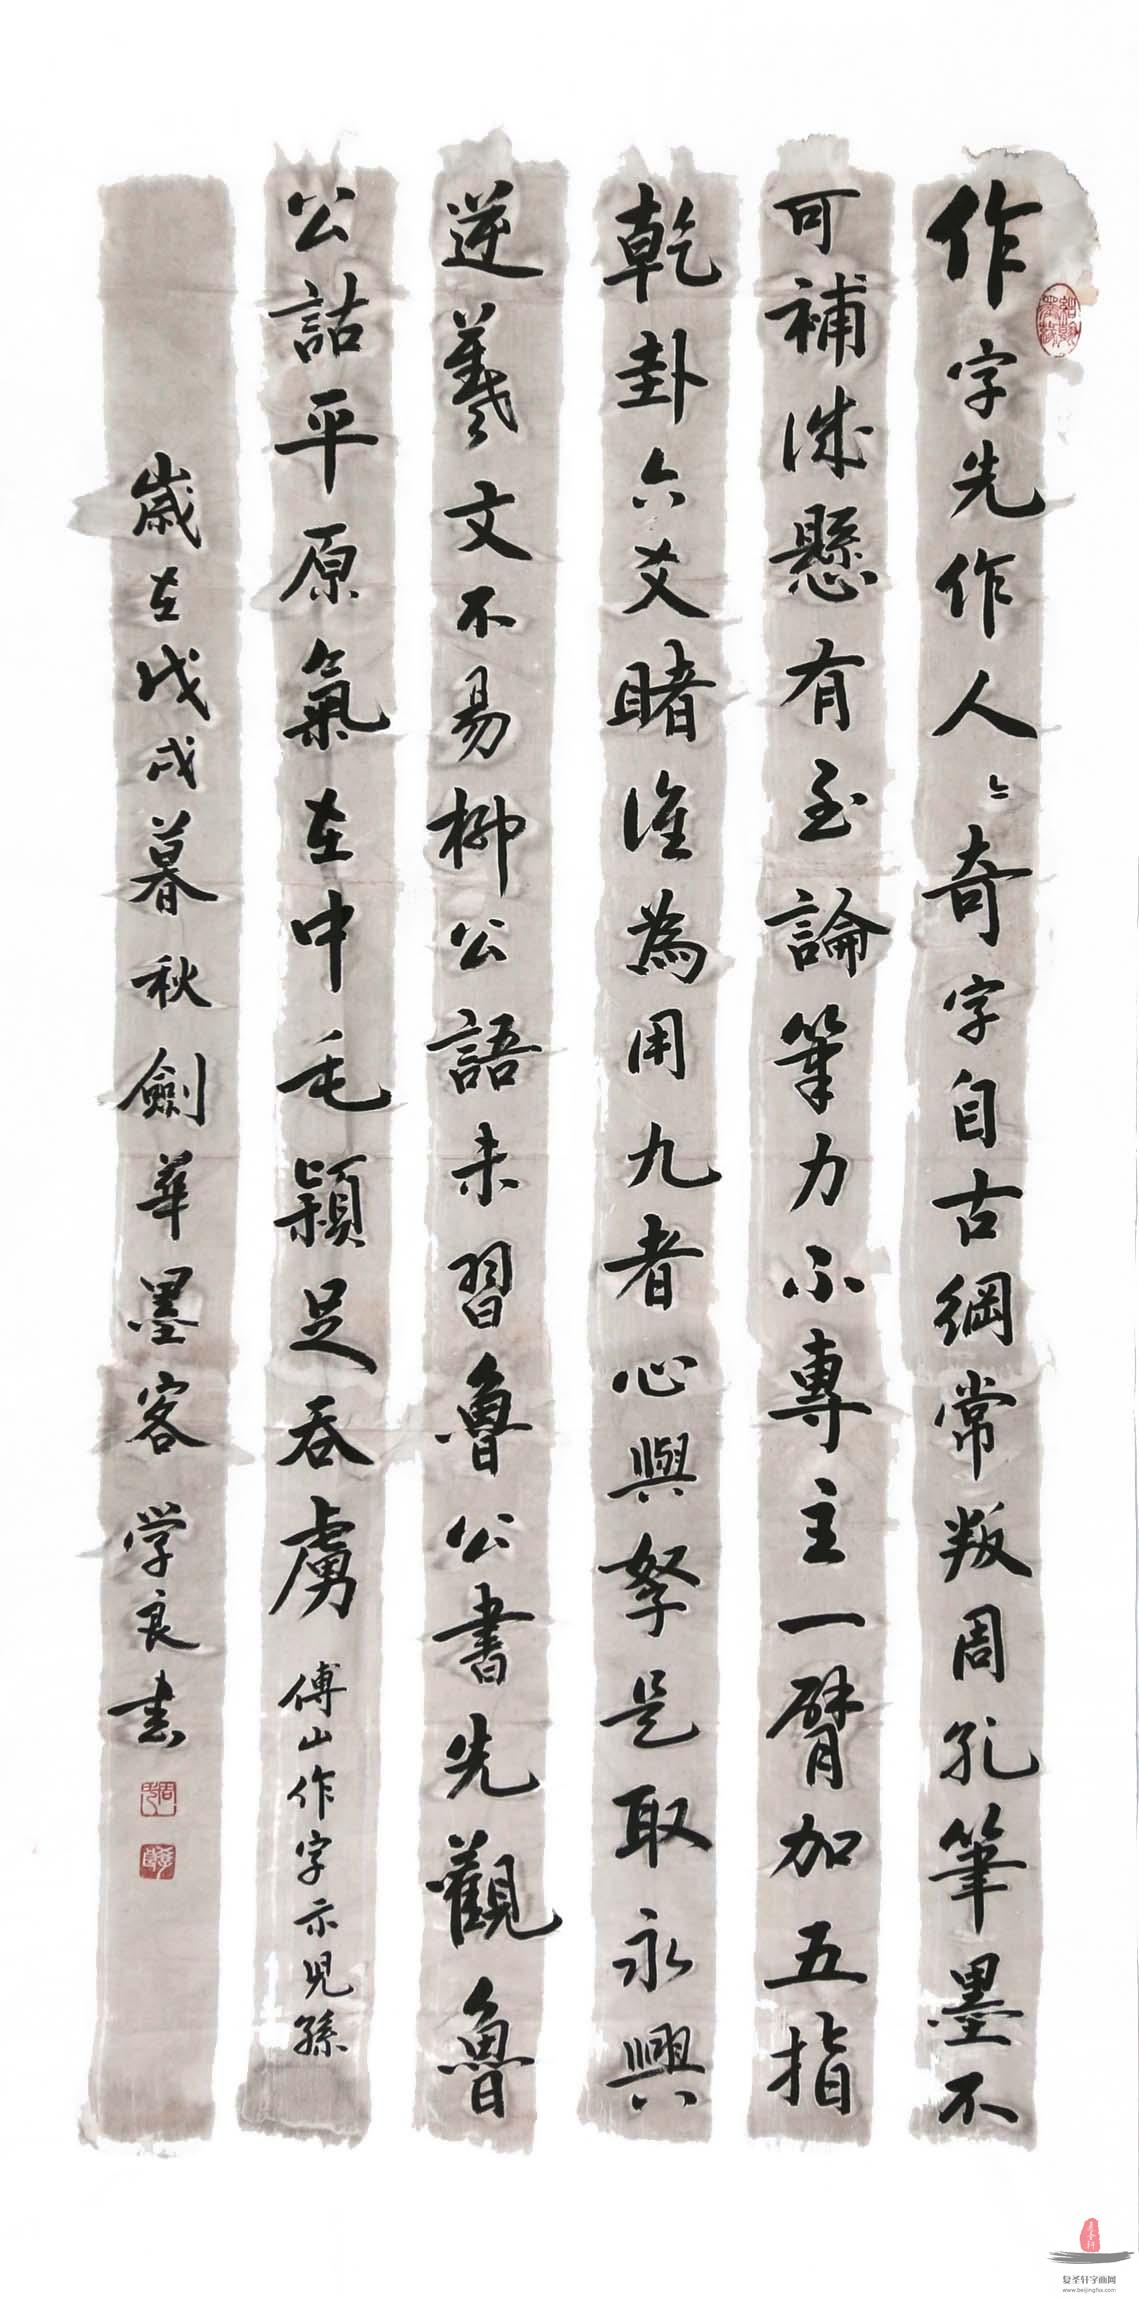 作字先作人〻奇字自古綱常叛周孔筆墨不
可補誠懸有至論筆力不專主一臂加五指
乾卦六爻睹誰為用九者心與孥是取永興
逆羲文不易柳公語未習魯公書先觀魯
公詁平原氣在中毛穎足吞虜 傅山作字示兒孫
歲在戊戌暮秋劍華墨客学良书
复圣轩字画网
www.beijingfsx.com